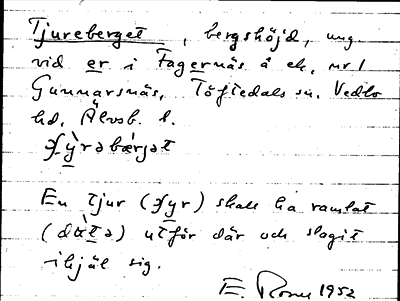 Tjureberget, bergshöjd, ung
vid er i Fagernäs å ek. nr 1
Gunnarsnäs, Töftedals sn. Vedbo
hd, Älvsb. l.
En tjur (ɟyr) skall ha ramlat
utför där och slagit
ihjäl sig.
1952